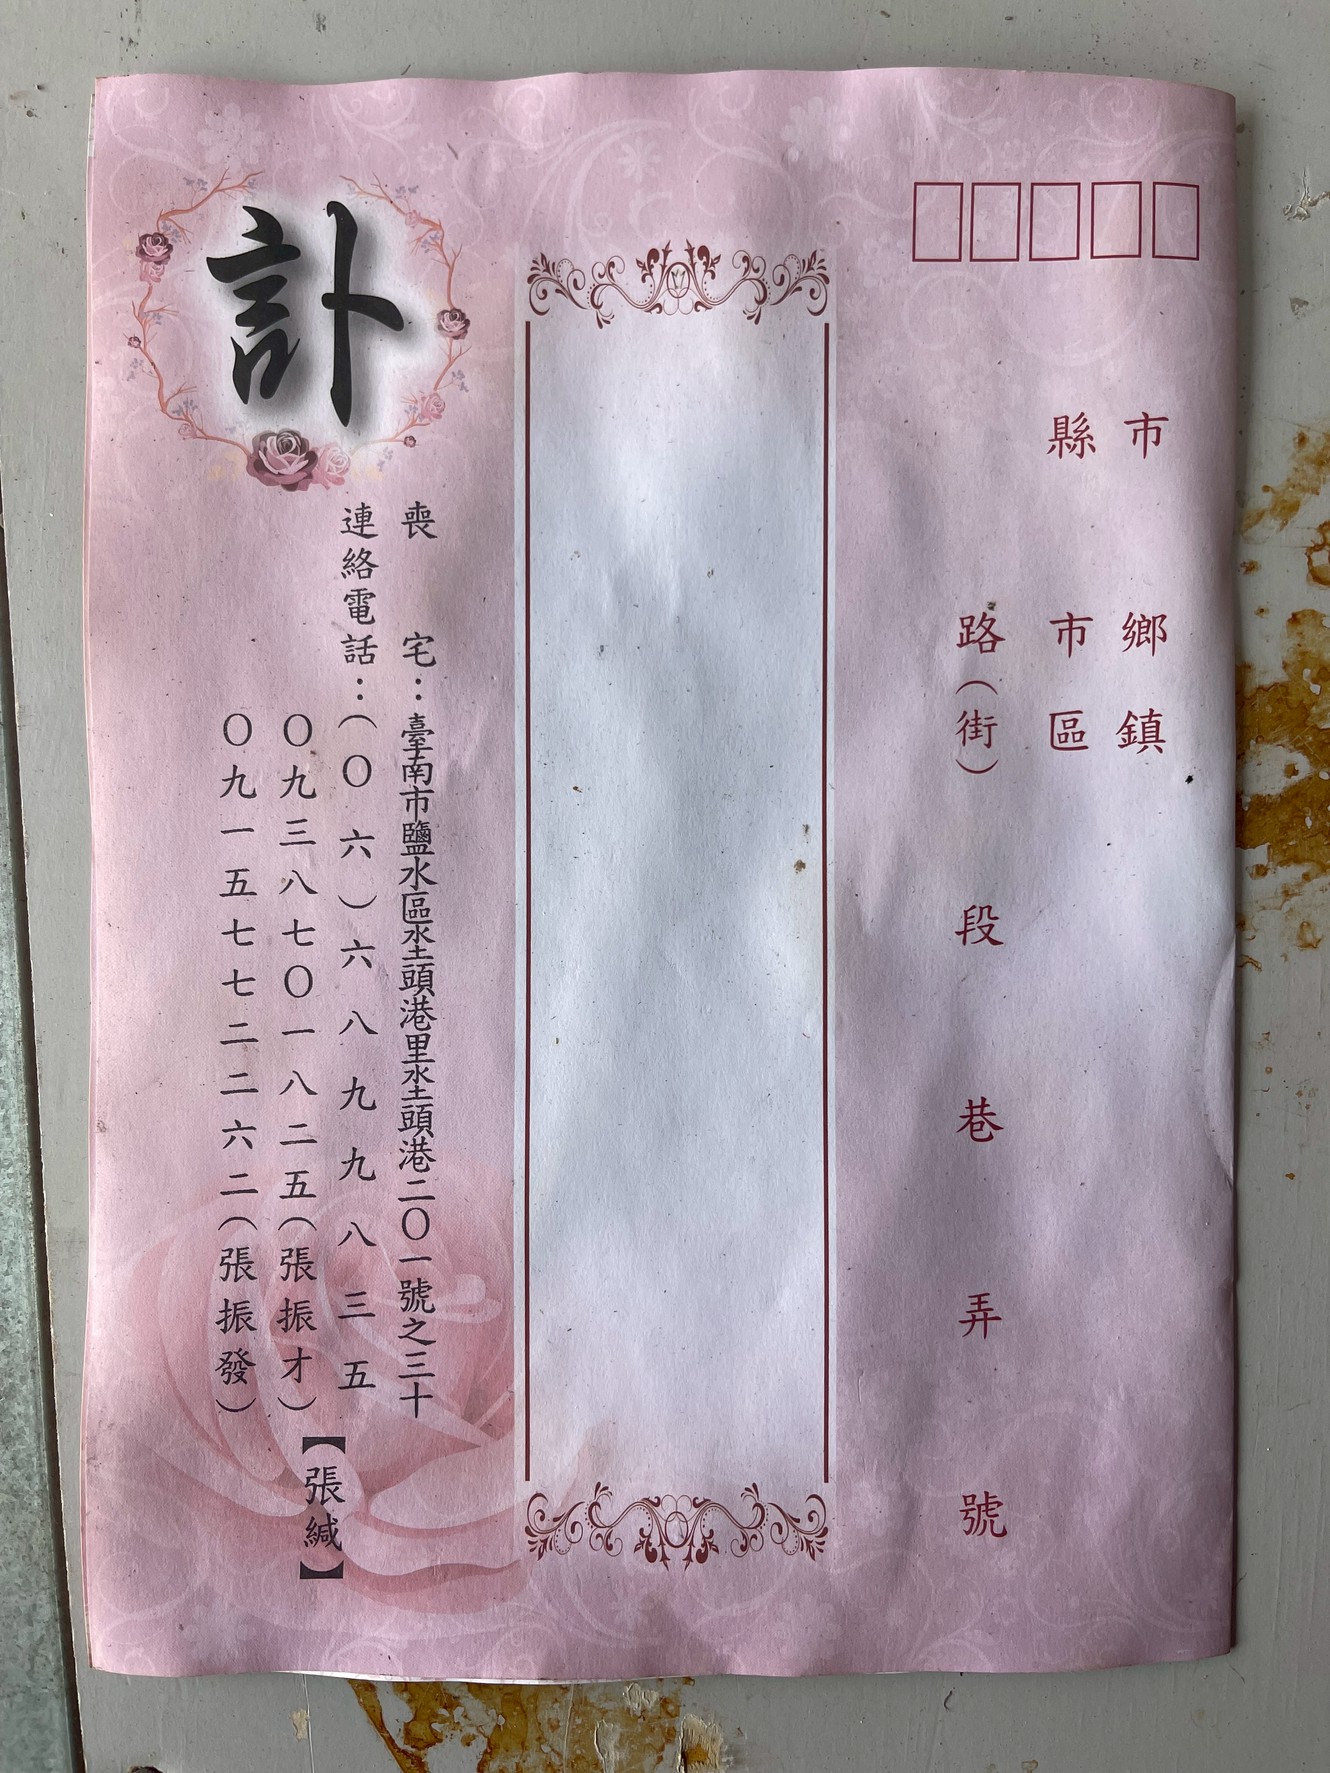 市　鄉鎮
縣　市區
路（街）　段　巷　弄　號
訃
喪　宅：臺南市鹽水區坔頭港里坔頭港二〇一號之三十
連絡電話：（〇六）六八九九八三五
〇九三八七〇一八二五（張振才）
〇九一五七七二二六二（張振發）
【張緘】